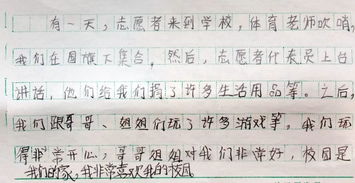 有一天，志愿者来到学校，体育老师吹哨，
我们在国旗下集合。然后，志愿者代表员上台
讲话，他们给我们捐了许多生活用品等。之后，
我们跟哥哥、姐姐们玩了许多游戏等。我们玩
得非常开心，哥哥姐姐对我们非常好，校园是
我们的家，我非常喜欢我的校园